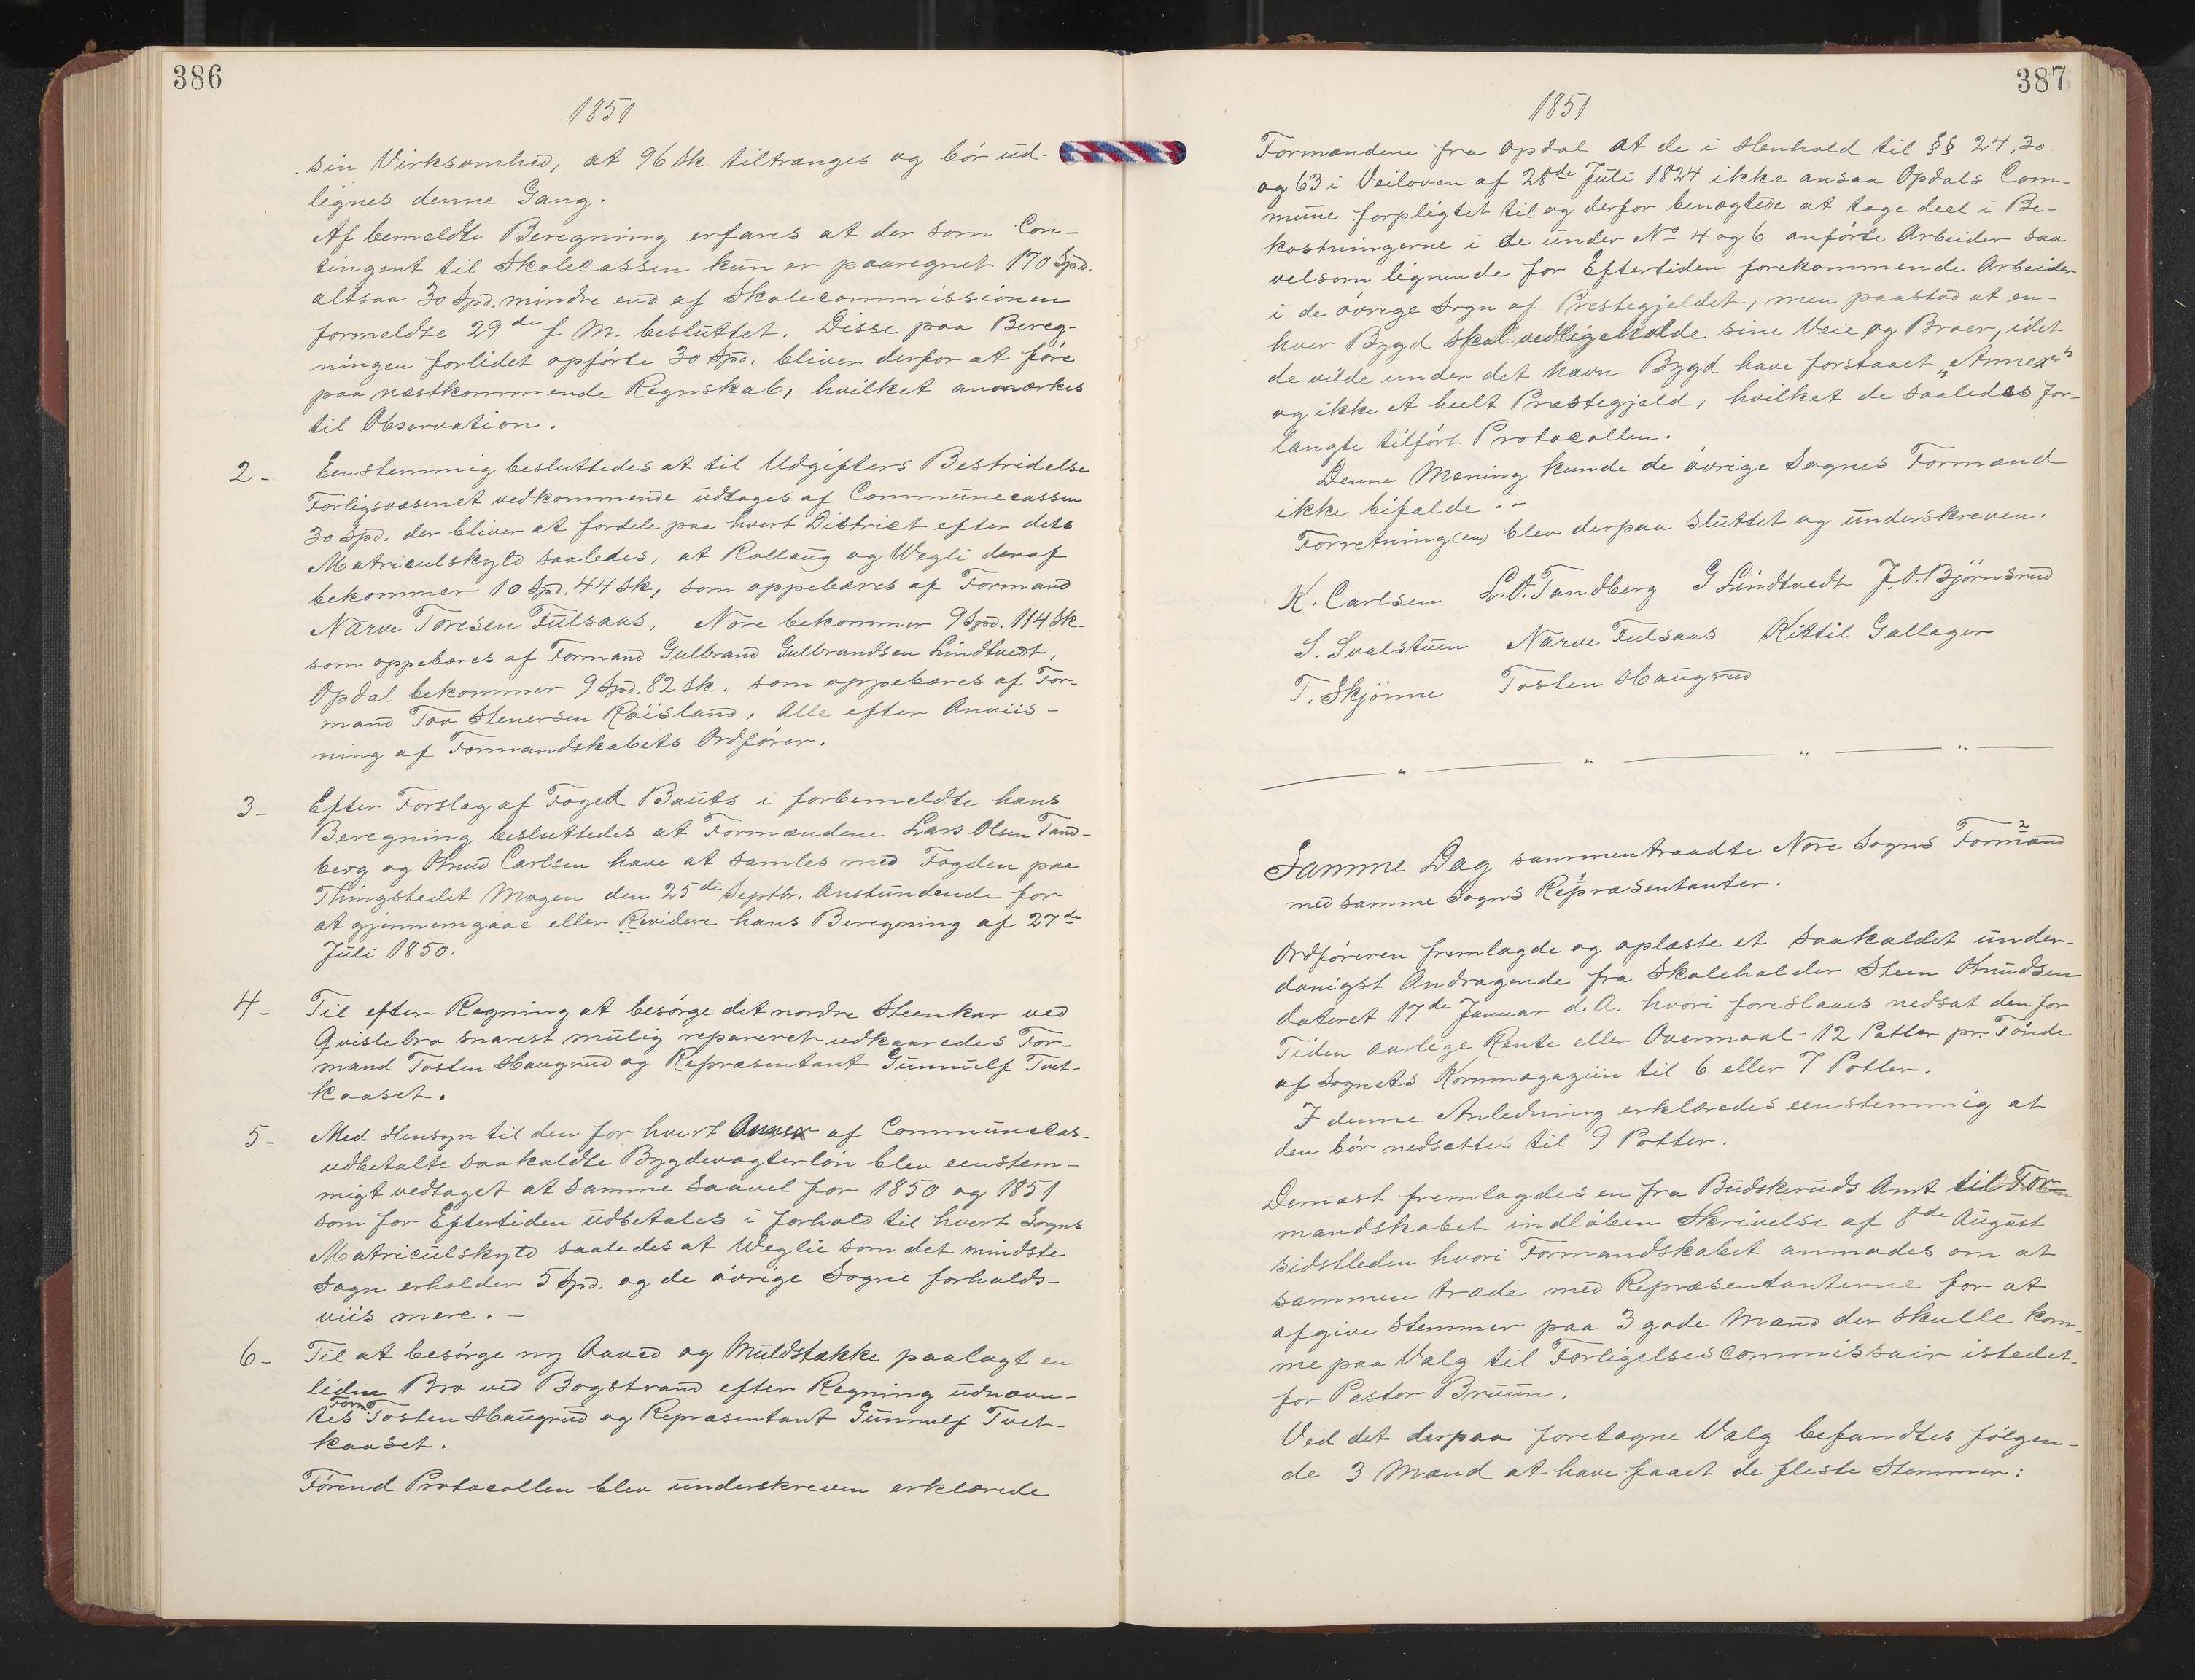 386
1851
sin Virksomhed, at 96 Sk. tiltrænges og bör ud-
lignes denne Gang.
Af bemeldte Beregning erfares at der som Con-
tingent til Skolecassen kun er paaregnet 170 Spd.
altsaa 30 Spd. mindre end af Skolecommissionen
formeldte 29de f. M. besluttet. Disse paa Bereg-
ningen forlidet opförte 30 Spd. bliver derfor at före
paa næstkommende Regnskab, hvilket anmærkes
til Observation.
2- Eenstemmig besluttedes at til Udgifters Bestridelse
Forligsvæsenet vedkommende udtages af Communecassen
30 Spd. der bliver at fordele paa hvert District efter dets
Matriculskyld saaledes, at Rollaug og Wegli deraf
bekommer 10 Spd. 44 Sk, som oppebæres af Formand
Narve Toresen Fulsaas, Nore bekommer 9 Spd. 114 Sk.
som oppebæres af Formand Gulbrand Gulbrandsen Lindtvedt,
Opdal bekommer 9 Spd. 82 Sk. som oppebæres af For-
mand Tov Stenersen Röisland, Alle efter Anviis-
ning af Formandskabets Ordförer.
3- Efter Forslag af Foged Bauts i forbemeldte hans
Beregning besluttedes at Formændene Lars Olsen Tand-
berg og Knud Carlsen have at samles med Fogden paa
Thingstedet Mogen den 25de Septbr. Anstundende for
at gjennemgaae eller Revidere hans Beregning af 27de
Juli 1850.
4- Til efter Regning at besörge det nordre Steenkar ved
Qvislebro snarest mulig repareret udkaaredes For-
mand Tosten Haugrud og Repræsentant Gunnulf Tvet-
kaaset.
5- Med Hensyn til den for hvert Annex af Communecas-
udbetalte saakaldte Bygdevægterlön blev eenstem-
migt vedtaget at samme saavel for 1850 og 1851
som for Eftertiden udbetales i forhold til hvert Sogns
Matriculskyld saaledes at Weglie som det mindste
Sogn erholder 5 Spd. og de övrige Sogne forholds-
viis mere. -
6- Til at besörge ny Aaved og Muldstække paalagt en
liden Bro ved Bogstrand efter Regning udnævn-
tes Form. Tosten Haugrud og Repræsentant Gunnulf Tvet-
kaaset.
Förend Protocollen blev underskreven erklærede
387
1851
Formændene fra Opdal at de i Henhold til §§ 24, 30
og 63 i Veiloven af 28de Juli 1824 ikke ansaa Opdals Com-
mune forpligtet til og derfor benægtede at tage deel i Be-
kostningerne i de under No 4 og 6 anförte Arbeider saa
velsom lignende for Eftertiden forekommende Arbeider
i de övrige Sogn af Præstegjeldet, men paastod at en-
hver Bygd skal vedligeholde sine Veie og Broer, idet
de vilde under det Navn Bygd have forstaaet "Annex"
og ikke et heelt Præstegjeld, hvilket de saaledes for-
langte tilfört Protocollen.
Denne Mening kunde de övrige Sognes Formænd
ikke bifalde. -
Forretning(en) blev derpaa sluttet og underskreven.
K. Carlsen L. O. Tandberg G Lindtvedt J. O. Björnsrud
S. Svalstuen Narve Fulsaas Kittil Gallager
T. Skjönne Tosten Haugrud
Samme Dag sammentraadte Nore Sogns 2 Formænd
med samme Sogns Repræsentanter.
Ordföreren fremlagde og oplæste et saakaldet under-
danigst Andragende fra Skoleholder Steen Knudsen
dateret 17de Januar d. A. hvori foreslaaes nedsat den for
Tiden aarlige Rente eller Overmaal 12 Potter pr. Tönde
af Sognets Kornmagaziin til 6 eller 7 Potter.
I denne Anledning erklæredes eenstemmig at
den bör nedsættes til 9 Potter.
Dernæst fremlagdes en fra Budskeruds Amt til For-
mandskabet indlöben Skrivelse af 8de August
sidstleden hvori Formandskabet anmodes om at
sammen træde med Repræsentanterne for at
afgive Stemmer paa 3 gode Mænd der skulle kom-
me paa Valg til Forligelsescommissair istedet-
for Pastor Bruun.
Ved det derpaa foretagne Valg befandtes fölgen-
de 3 Mænd at have faaet de fleste Stemmer: